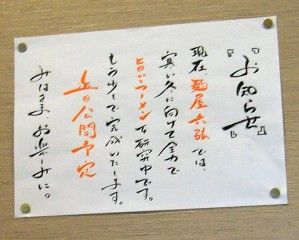 『お知らせ』
現在麺屋六弦では、
寒い冬に向けて全力で
旨いラーメンを研究中です。
もう少しで完成いたします。
近日公開予定
みなさま、お楽しみに。